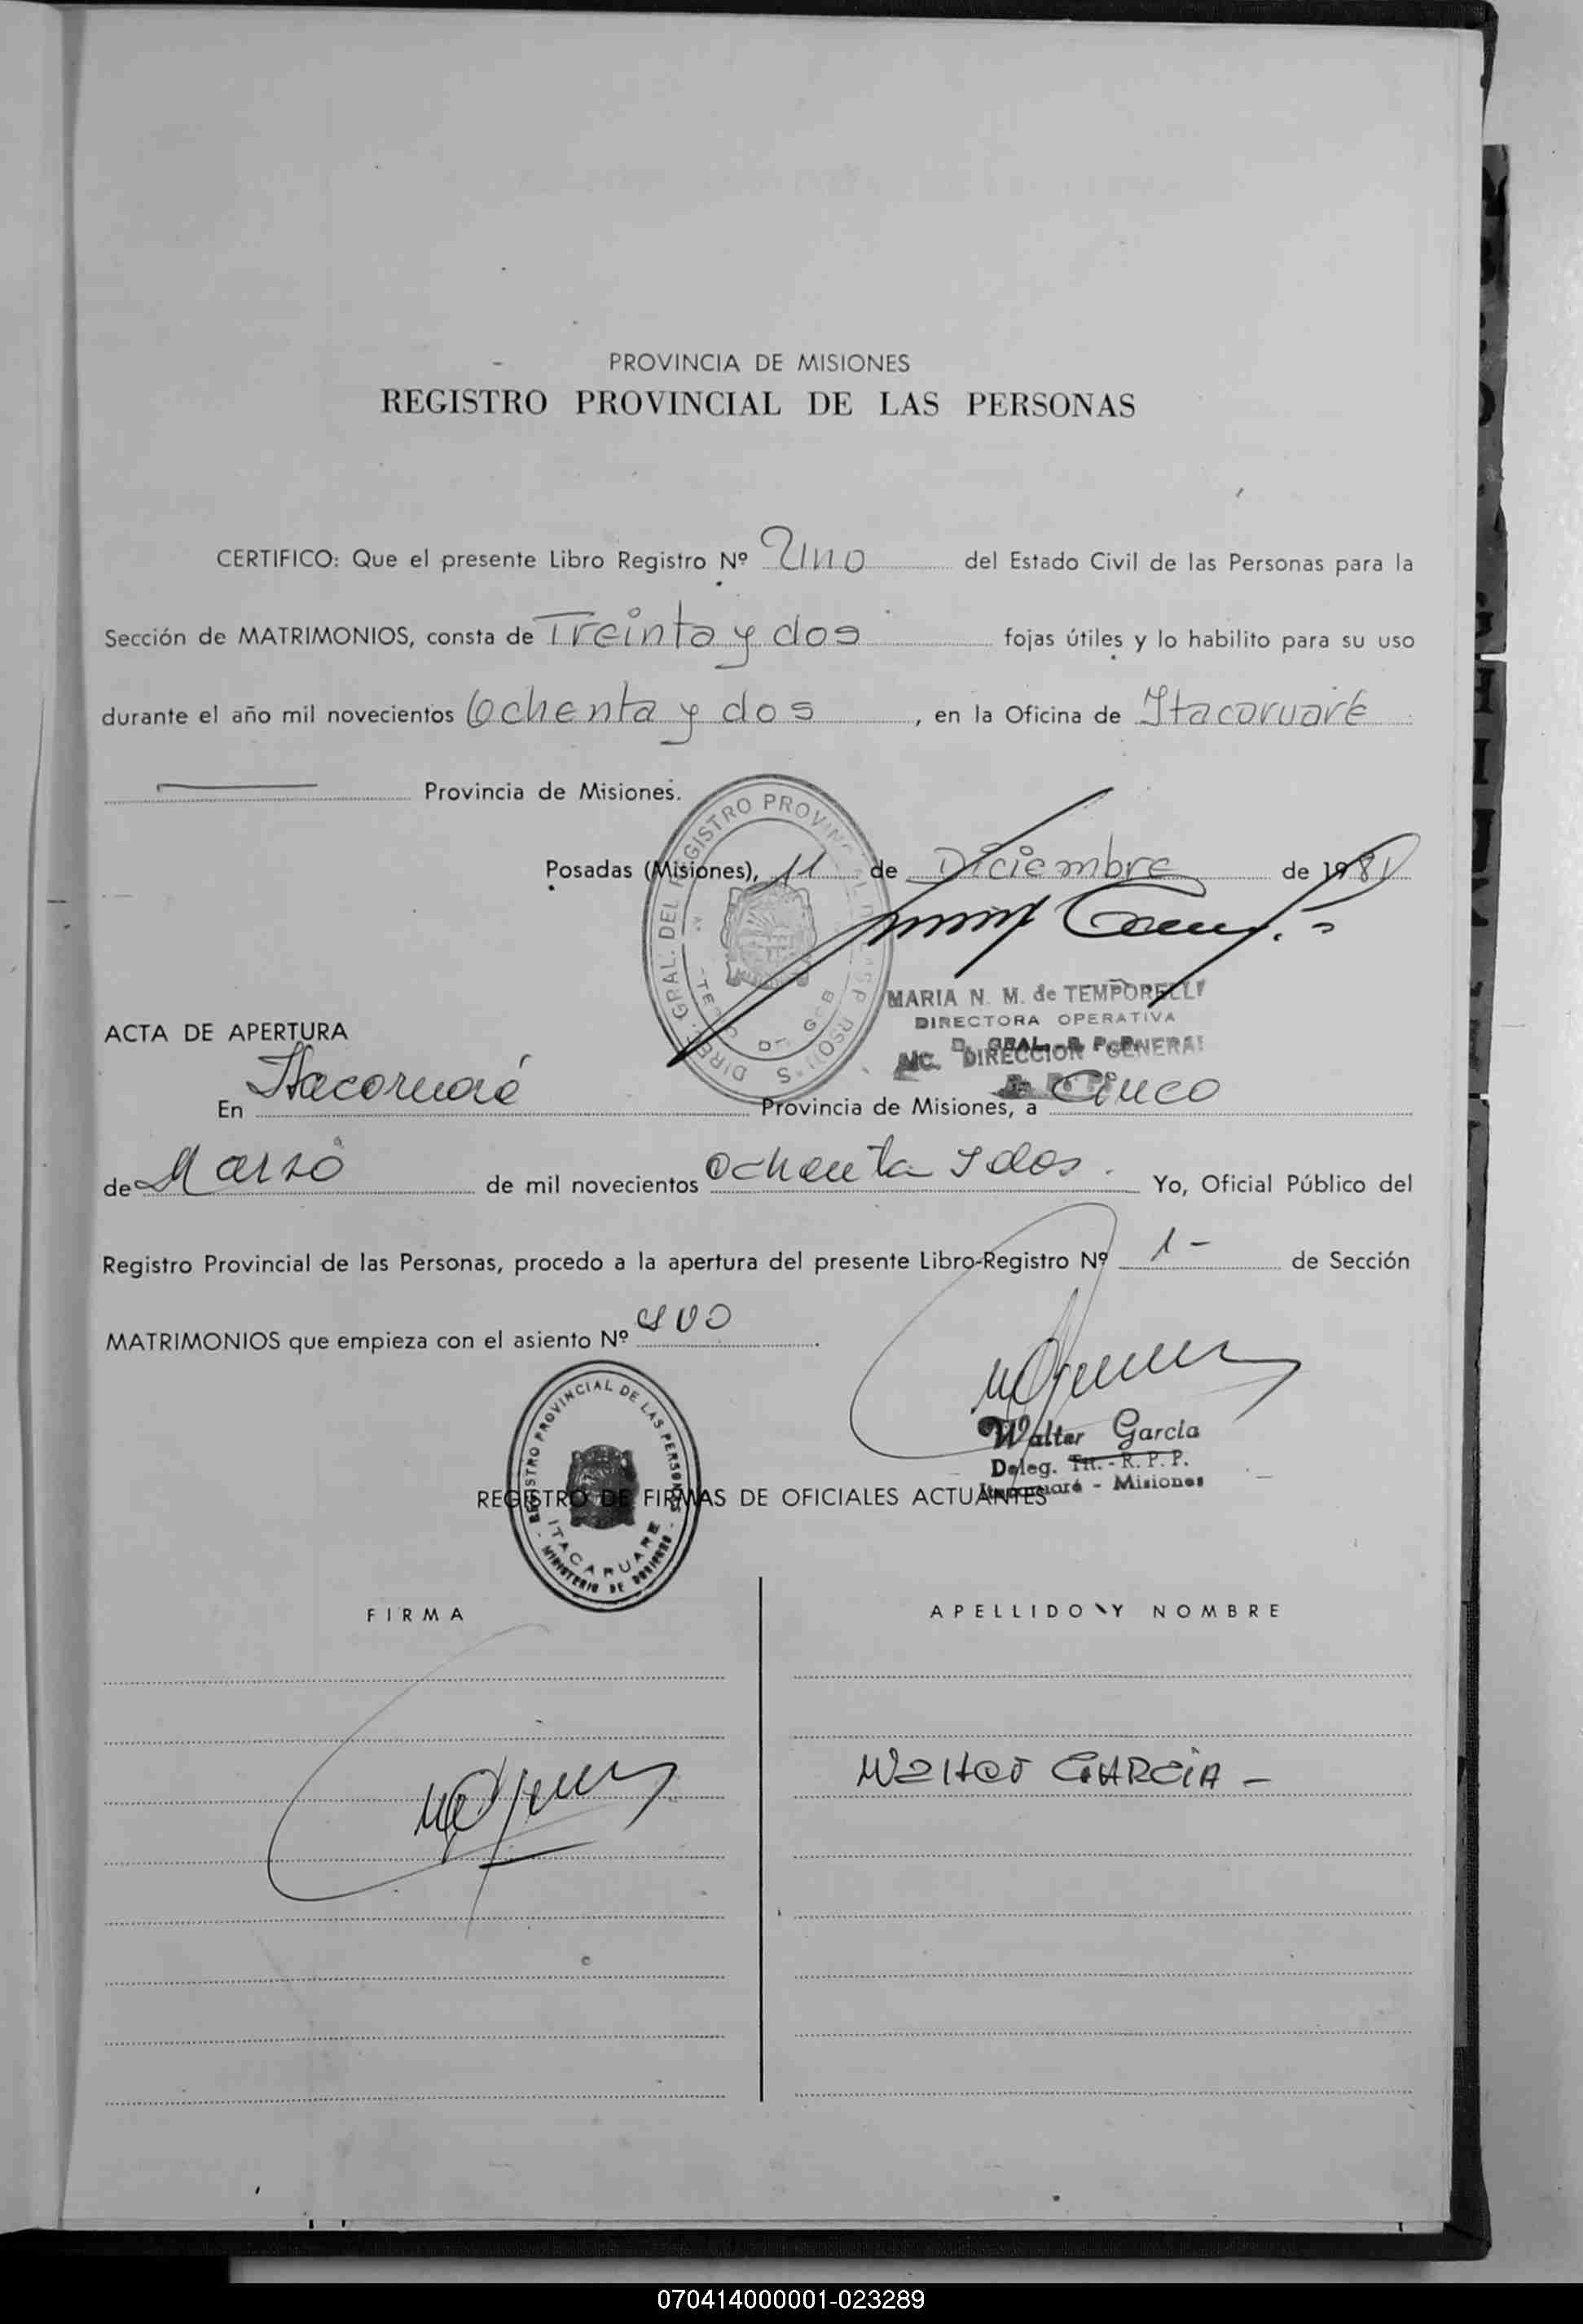 PROVINCIA DE MISIONES
REGISTRO PROVINCIAL DE LAS PERSONAS
CERTIFICO: Que el presente Libro Registro Nº Uno del Estado Civil de las Personas para la
Sección de MATRIMONIOS, consta de Treinta y dos fojas útiles y lo habilito para su uso
durante el año mil novecientos Ochenta y dos, en la Oficina de Itacaruaré
Provincia de Misiones.
Posadas (Misiones), 11 de Diciembre de 1981
MARIA N. M. de TEMPORELLI
DIRECTORA OPERATIVA
D. GRAL. R. P. P.
DIRECCION GENERAL
ACTA DE APERTURA
En Itacaruaré Provincia de Misiones, a Cinco
de Marzo de mil novecientos Ochenta y dos. Yo, Oficial Público del
Registro Provincial de las Personas, procedo a la apertura del presente Libro-Registro Nº 1- de Sección
MATRIMONIOS que empieza con el asiento Nº
REGISTRO PROVINCIAL DE LAS PERSONAS
ITACARUARE
MINISTERIO DE GOBIERNO
Walter García
Deleg. Tit. - R. P. P.
Itacaruaré - Misiones
REGISTRO DE FIRMAS DE OFICIALES ACTUANTES
FIRMA APELLIDO Y NOMBRE
Walter GARCIA -
070414000001-023289